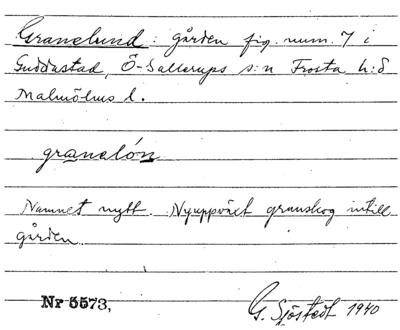 Granelund: gården fig. num. 7 i
Guddastad, Ö-Sallerups s:n Frosta h:d
Malmöhus l.
granelón
Namnet nytt. Nyuppväxt granskog intill
gården.
Nr 5573,
G. Sjöstedt 1940